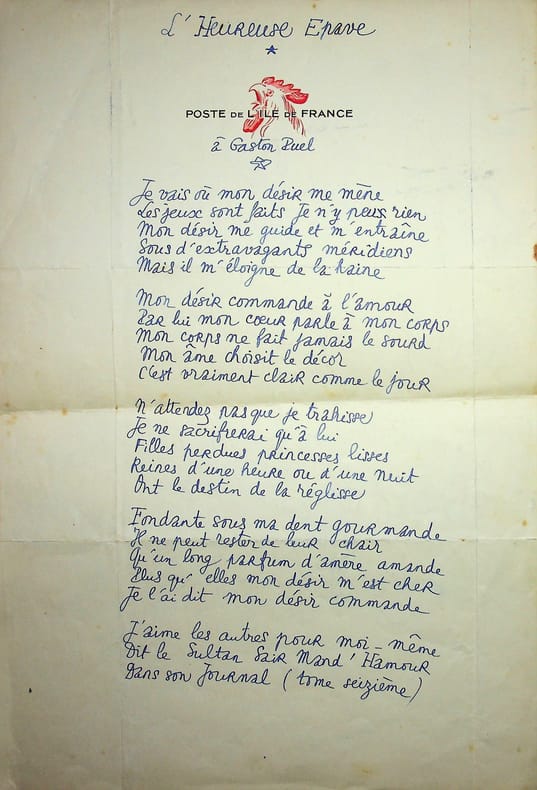 L'Heureuse Epave
POSTE DE L'ILE DE FRANCE
à Gaston Puel
Je vais où mon désir me mène
Les jeux sont faits Je n'y peux rien
Mon désir me guide et m'entraîne
Sous d'extravagants méridiens
Mais il m'éloigne de la haine
Mon désir commande à l'amour
Par lui mon cœur parle à mon corps
Mon corps ne fait jamais le sourd
Mon âme choisit le décor
C'est vraiment clair comme le jour
N'attendez pas que je trahisse
Je ne sacrifierai qu'à lui
Filles perdues princesses lisses
Reines d'une heure ou d'une nuit
Ont le destin de la réglisse
Fondante sous ma dent gourmande
Il ne peut rester de leur chair
Qu'un long parfum d'amère amande
Plus qu'elles mon désir m'est cher
Je l'ai dit mon désir commande
J'aime les autres pour moi-même
Dit le Sultan Sair Mand' Hamour
Dans son Journal (tome seizième)